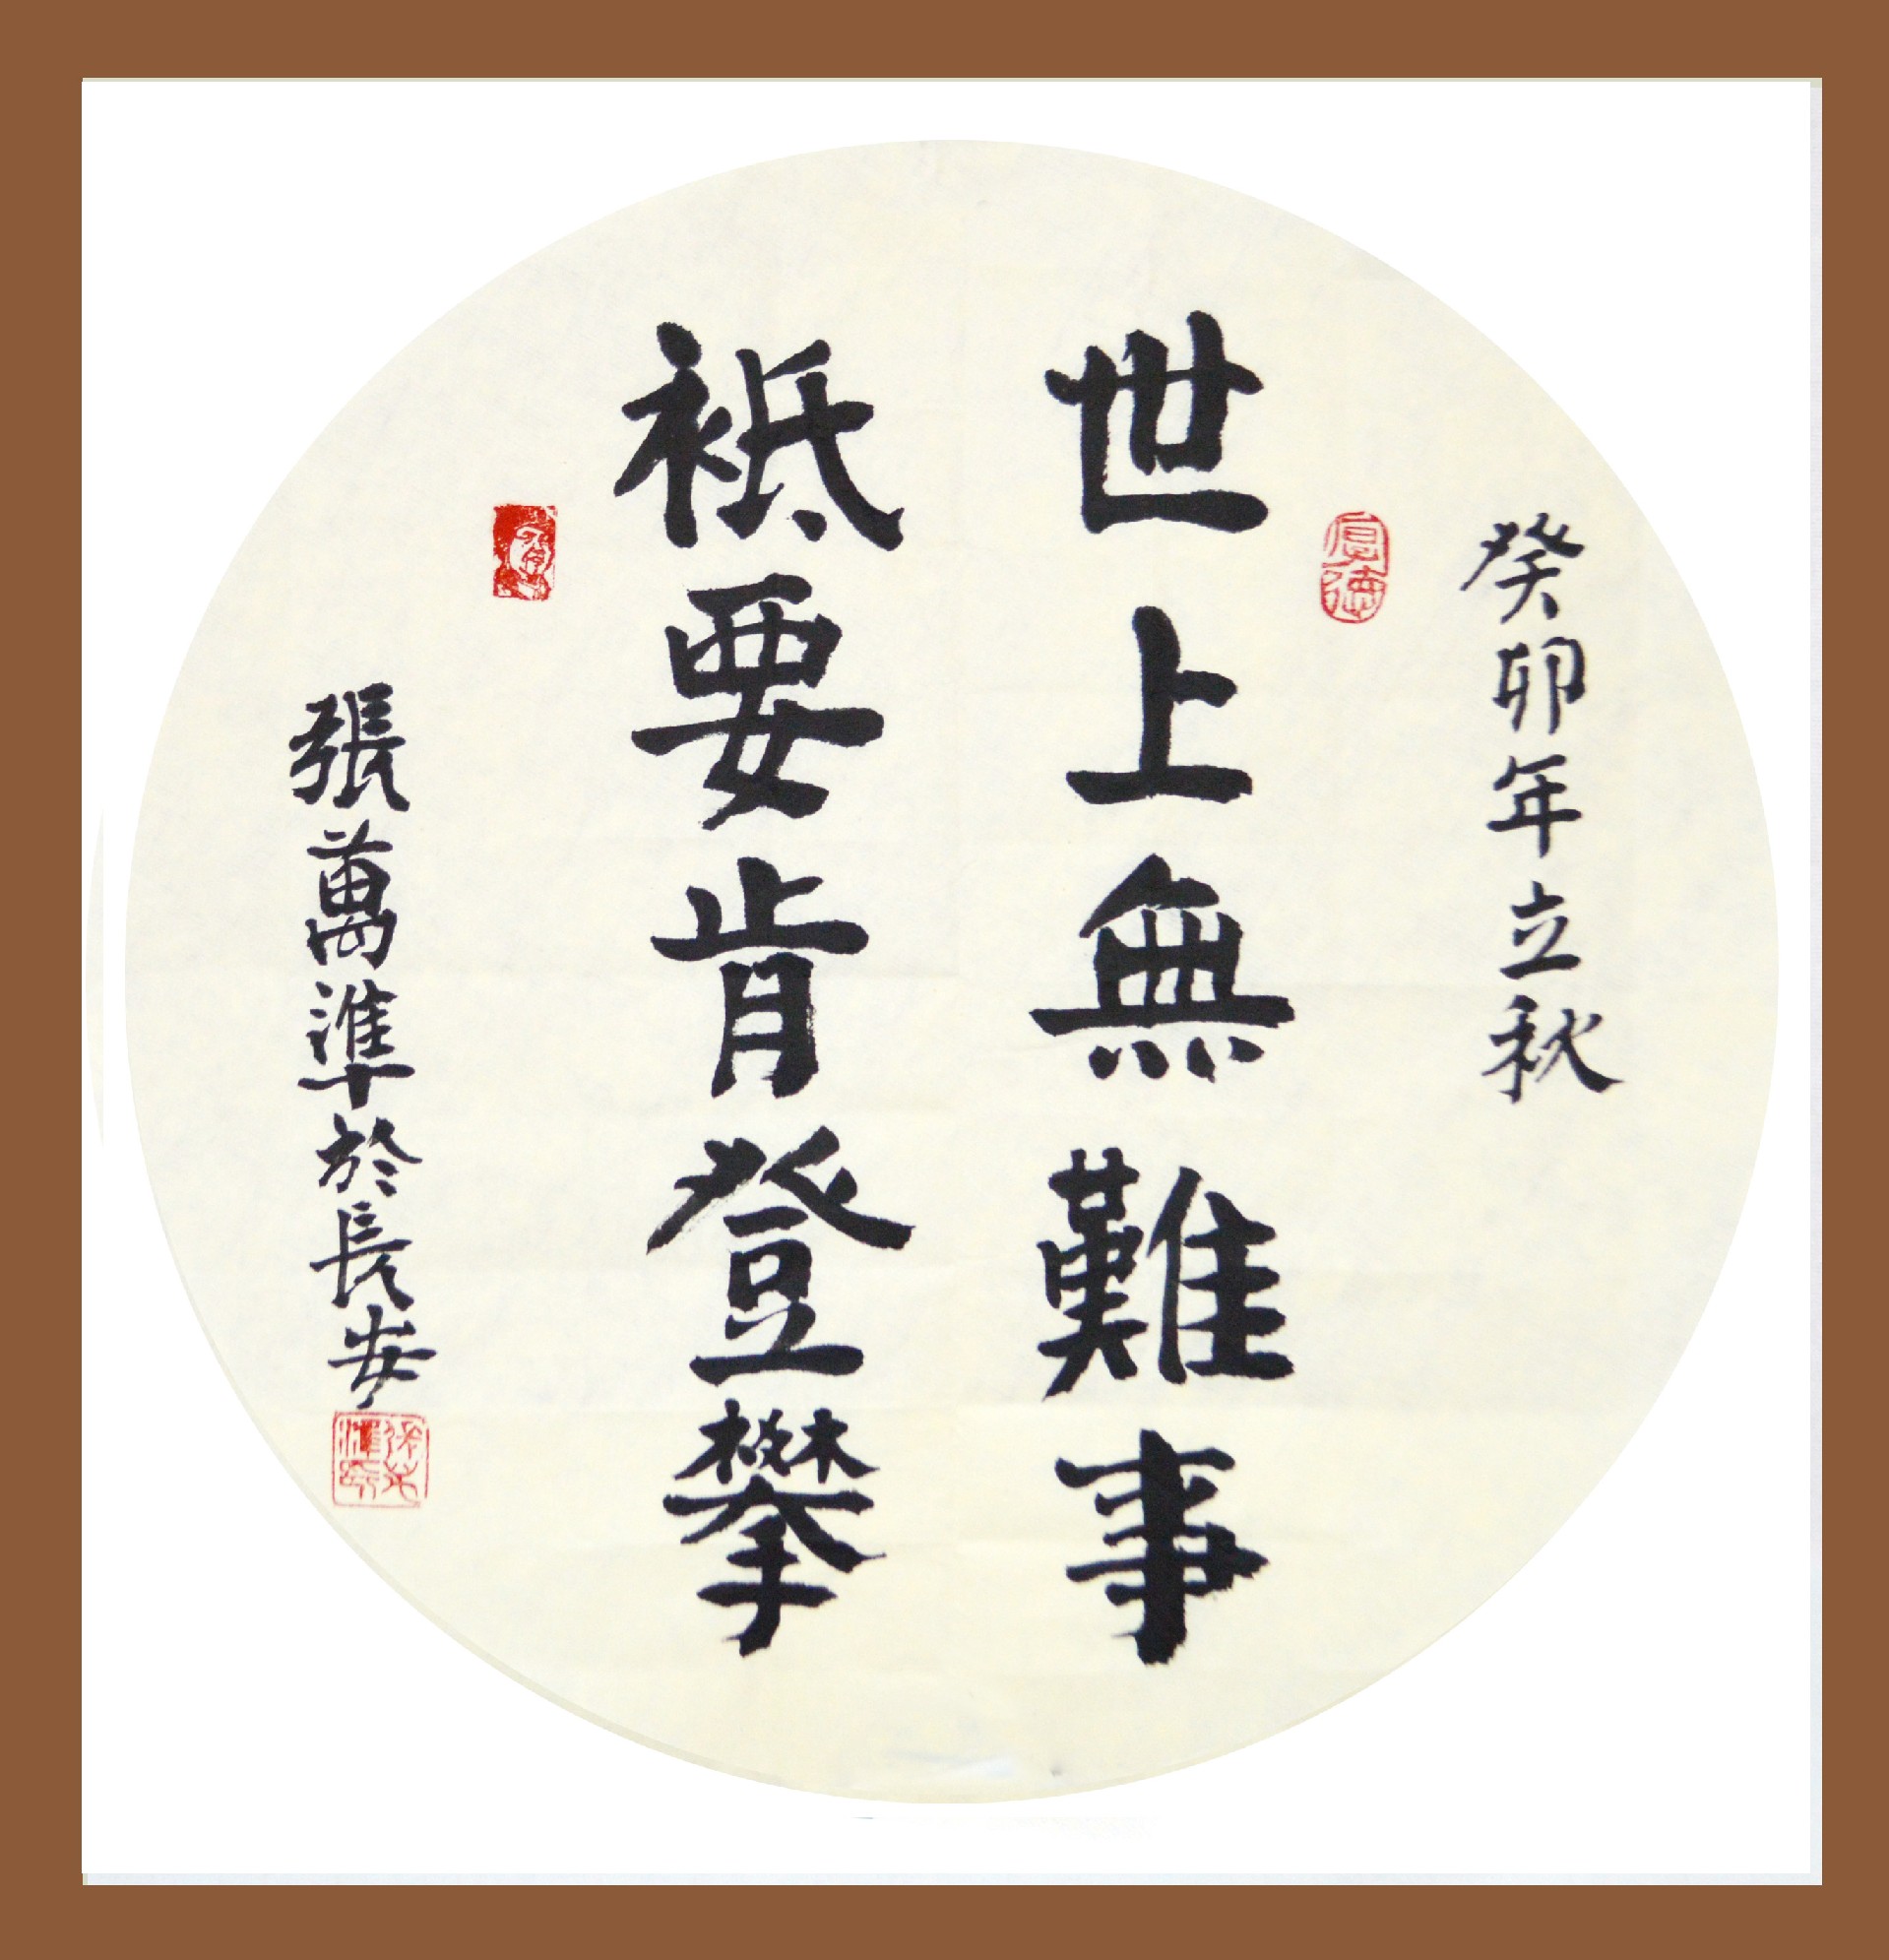 癸卯年立秋
厚德
世上無難事
袛要肯登攀
張萬準於長安